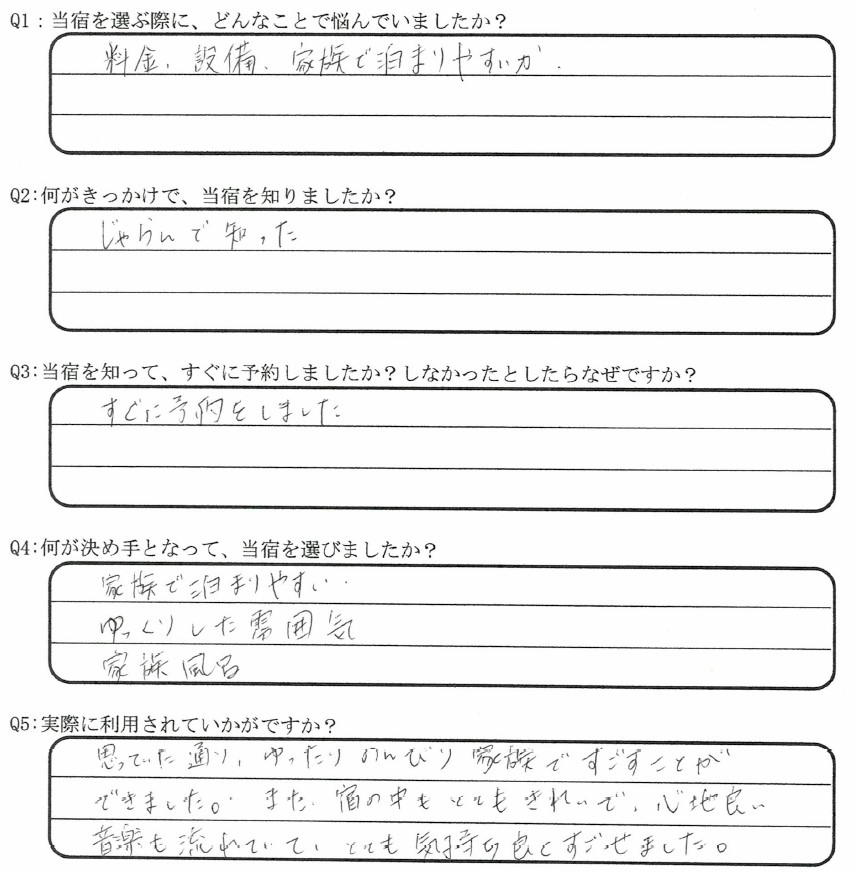 Q1：当宿を選ぶ際に、どんなことで悩んでいましたか？
料金、設備、家族で泊まりやすいか.
Q2:何がきっかけで、当宿を知りましたか？
じゃらんで知った
Q3:当宿を知って、すぐに予約しましたか？しなかったとしたらなぜですか？
すぐに予約をしました
Q4:何が決め手となって、当宿を選びましたか？
家族で泊まりやすい.
ゆっくりした雰囲気
家族風呂
Q5:実際に利用されていかがですか？
思っていた通り、ゆったりのんびり家族ですごすことが
できました。また、宿の中もとてもきれいで、心地良い
音楽も流れていて、とても気持ち良くすごせました。